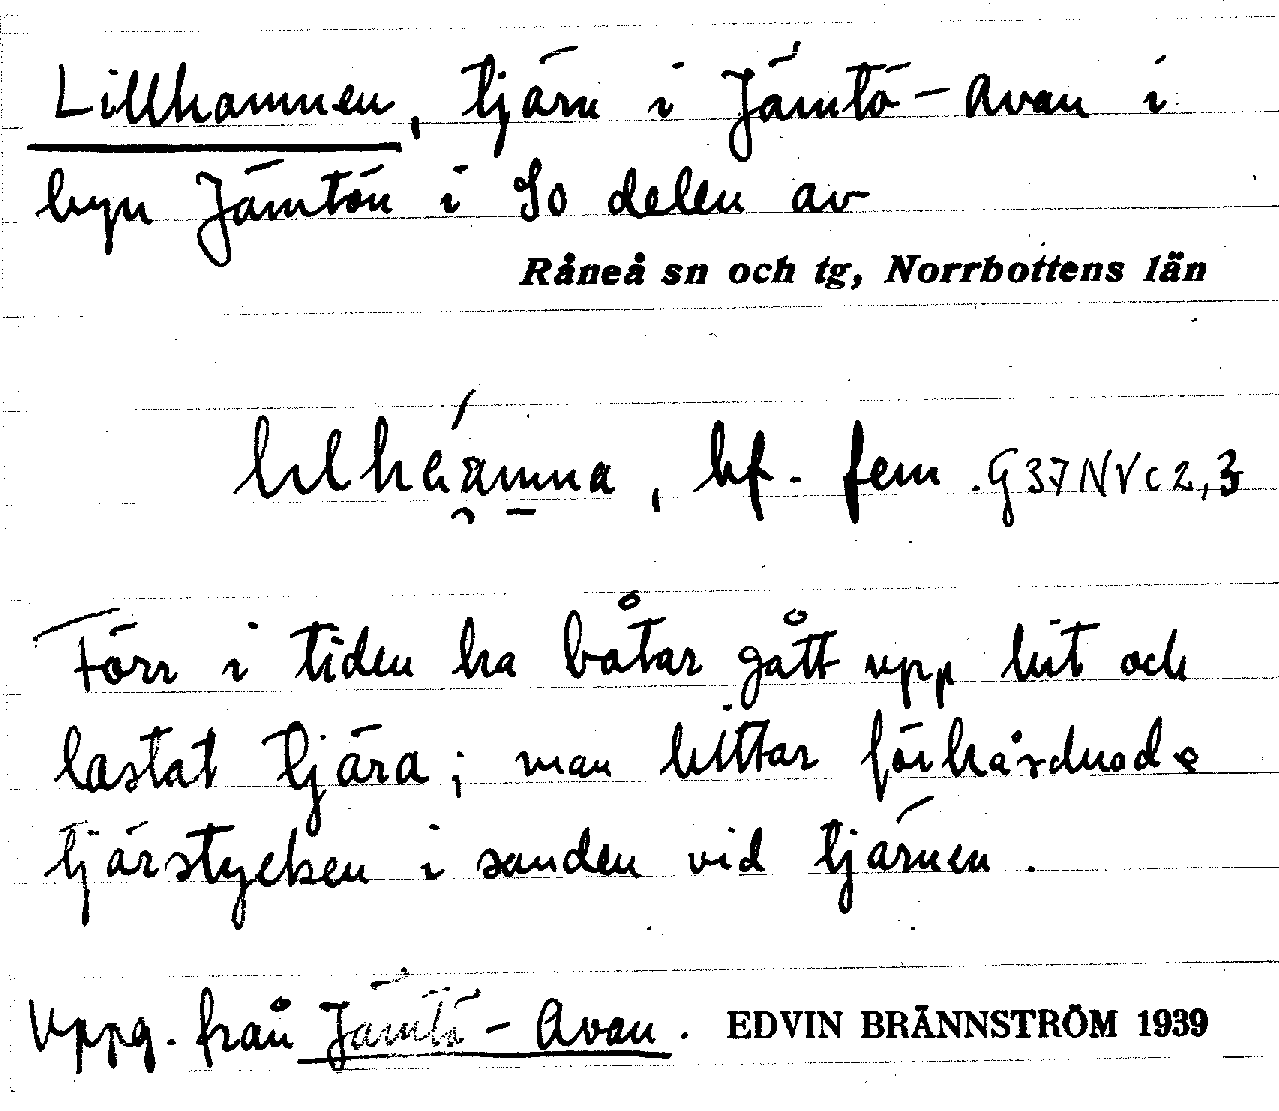 Lillhamnen, tjärn i Jämtö-Avan i
byn Jämtön i So delen av
Råneå sn och tg, Norrbottens län
bf. fem. G37NVc2,3
Förr i tiden ha båtar gått upp hit och
lastat tjära; man hittar förhårdnade
tjärstycken i sanden vid tjärnen.
Uppg. från Jämtö-Avan. EDVIN BRÄNNSTRÖM 1939